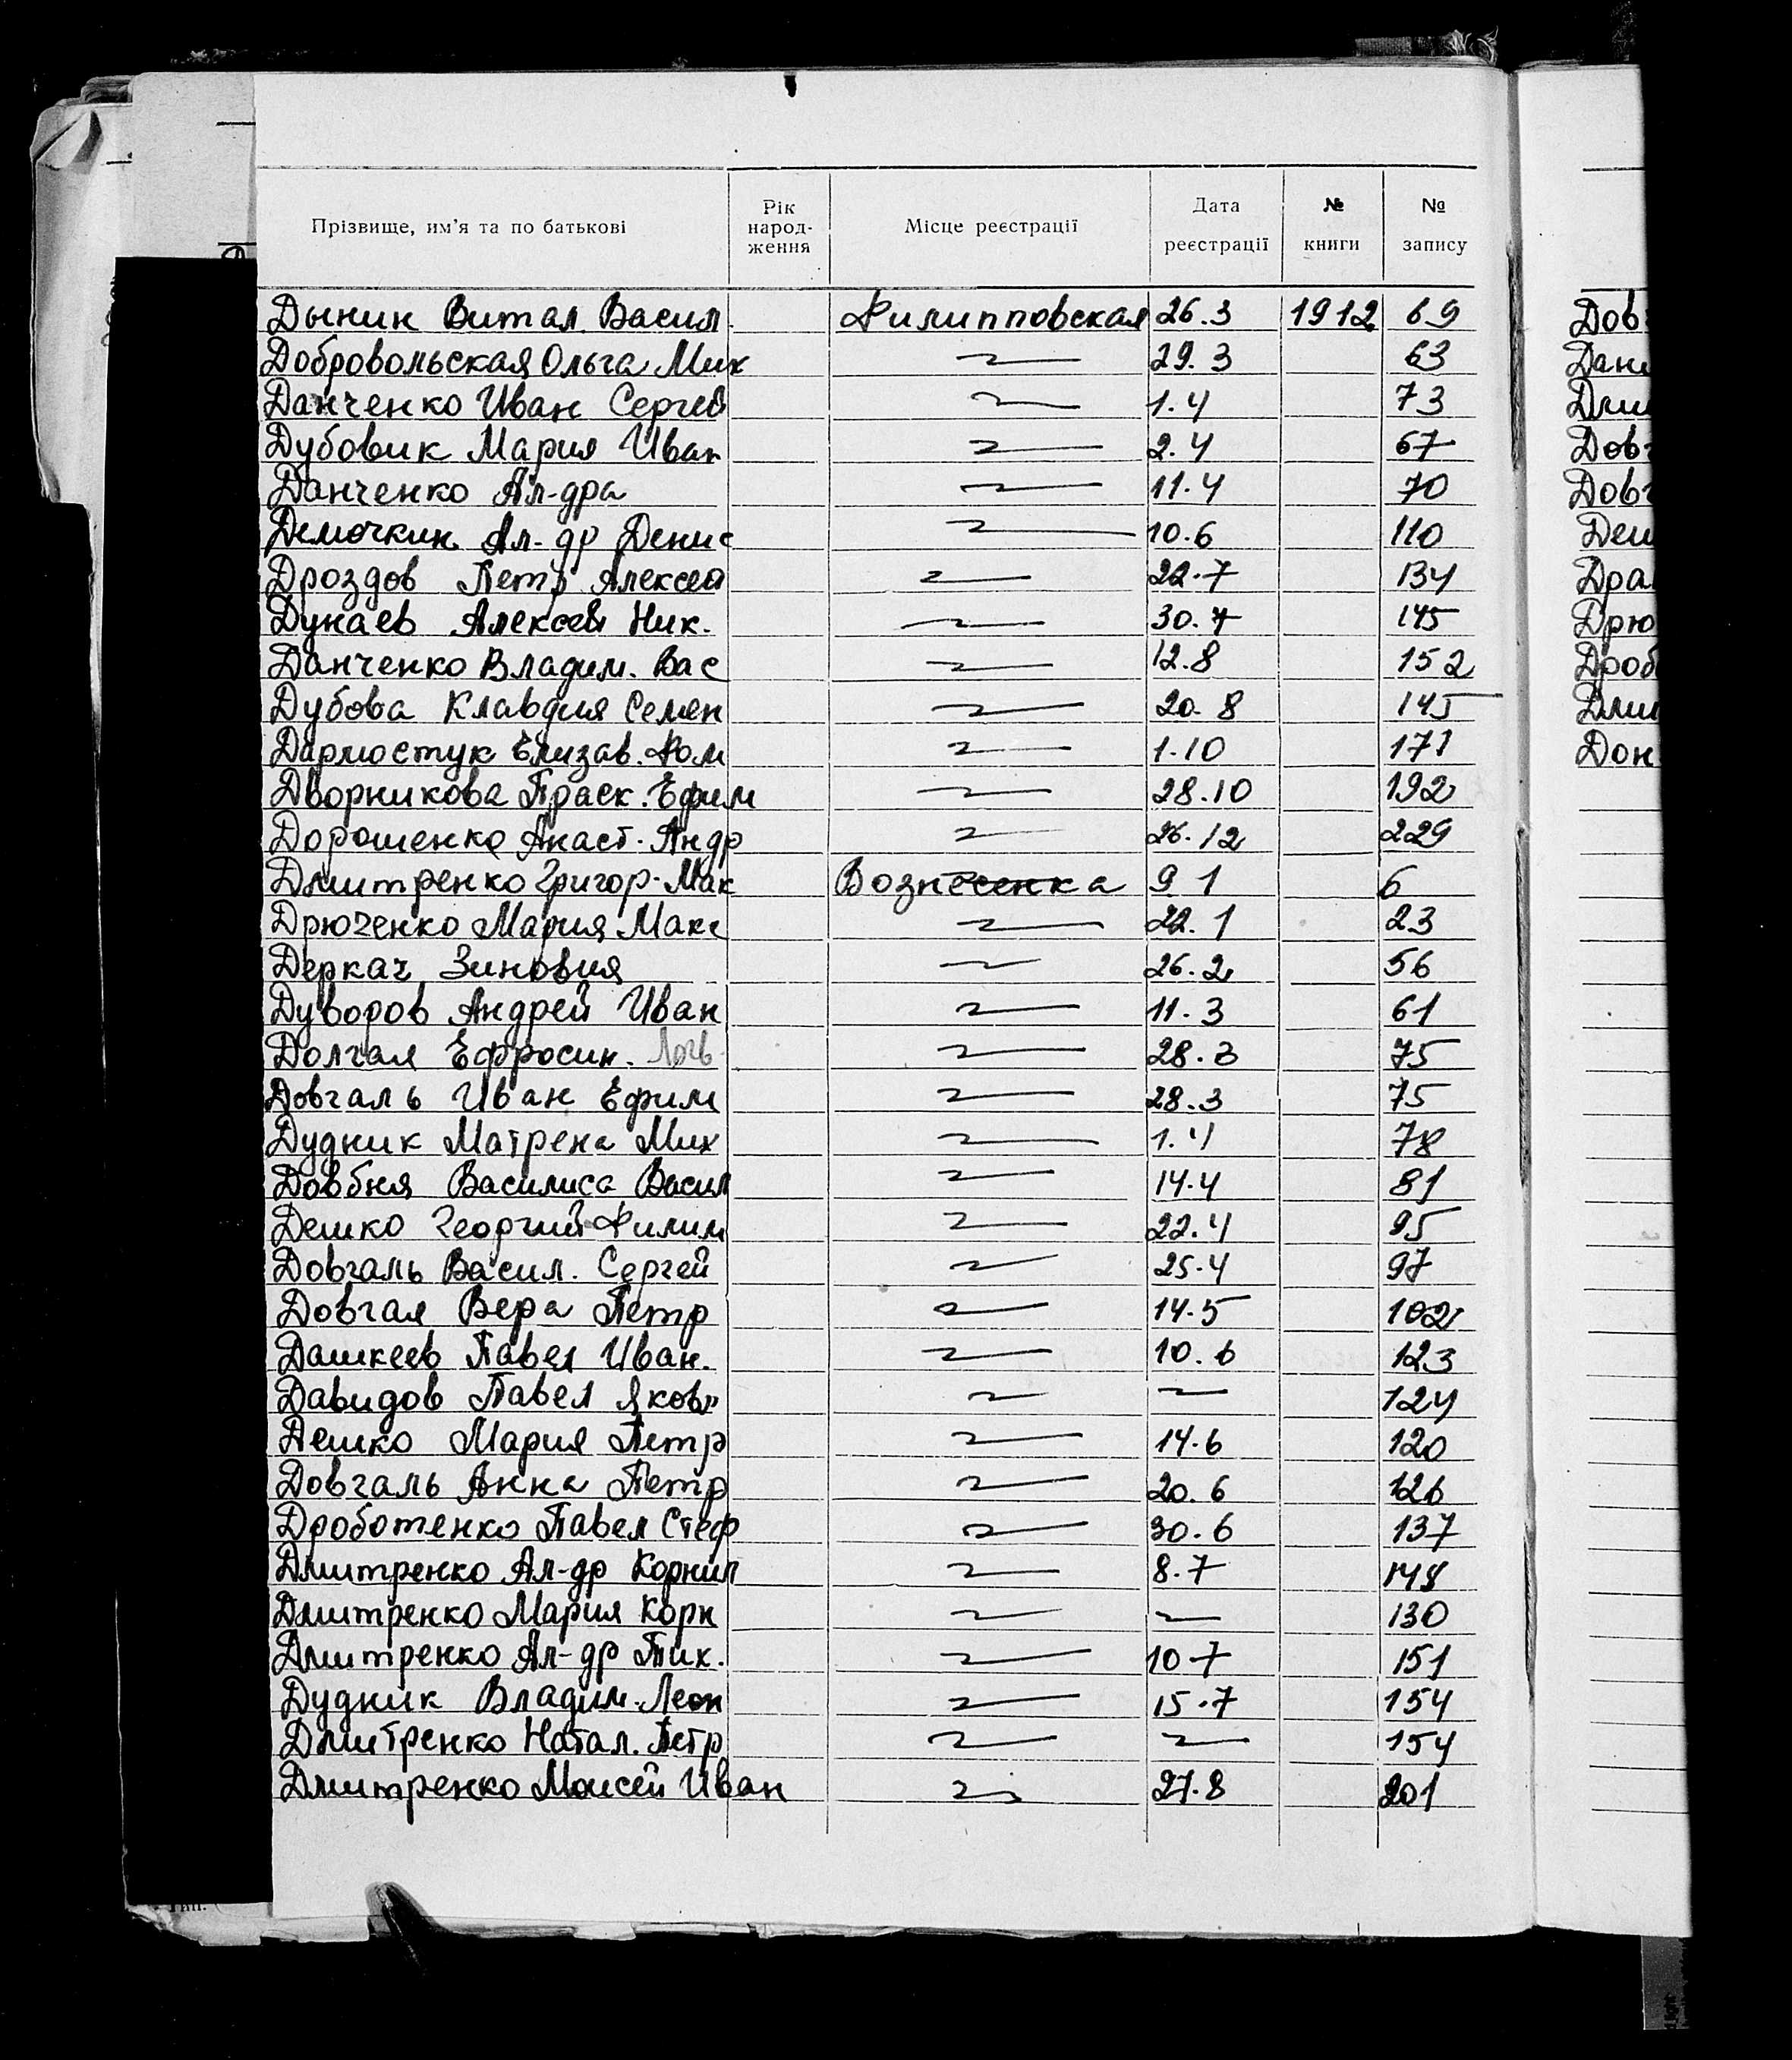 Прізвище, им'я та по батькові Рік народ-ження Місце реєстрації Дата реєстрації № книги № запису
Дынин Витал. Васил. Филипповская 26.3 1912 69
Добровольская Ольга Мих 29.3 63
Данченко Иван Сергев 1.4 73
Дубовик Мария Иван 2.4 67
Данченко Ал-дра 11.4 70
Демочкин Ал-др Денис 10.6 110
Дроздов Петр Алексей 22.7 134
Дунаев Алексей Ник. 30.7 145
Данченко Владим. Вас 12.8 152
Дубова Клавдия Семен 20.8 145
Дармостук Елизав. Фом 1.10 171
Дворникова Праск. Ефим 28.10 192
Дорошенко Анаст. Андр 26.12 229
Дмитренко Григор. Мак Вознесенка 9 1 6
Дрюченко Мария Макс 22.1 23
Деркач Зиновия 26.2 56
Дуворов Андрей Иван 11.3 61
Долгая Ефросин. Логв 28.3 75
Довгаль Иван Ефим 28.3 75
Дудник Матрена Мих 1.4 78
Довбня Василиса Васил 14.4 81
Дешко Георгий Филим 22.4 95
Довгаль Васил. Сергей 25.4 97
Довгая Вера Петр 14.5 102
Дашкеев Павел Иван. 10.6 123
Давидов Павел Яковл 124
Дешко Мария Петр 14.6 120
Довгаль Анна Петр 20.6 126
Дроботенко Павел Стеф 30.6 137
Дмитренко Ал-др Корнил 8.7 148
Дмитренко Мария Корн 130
Дмитренко Ал-др Тих. 10 7 151
Дудник Владим. Леон 15.7 154
Дмитренко Натал. Петр 154
Дмитренко Моисей Иван 27.8 201
Дов
Дан
Дми
Довг
Довг
Деш
Дра
Дрю
Дроб
Дми
Дон